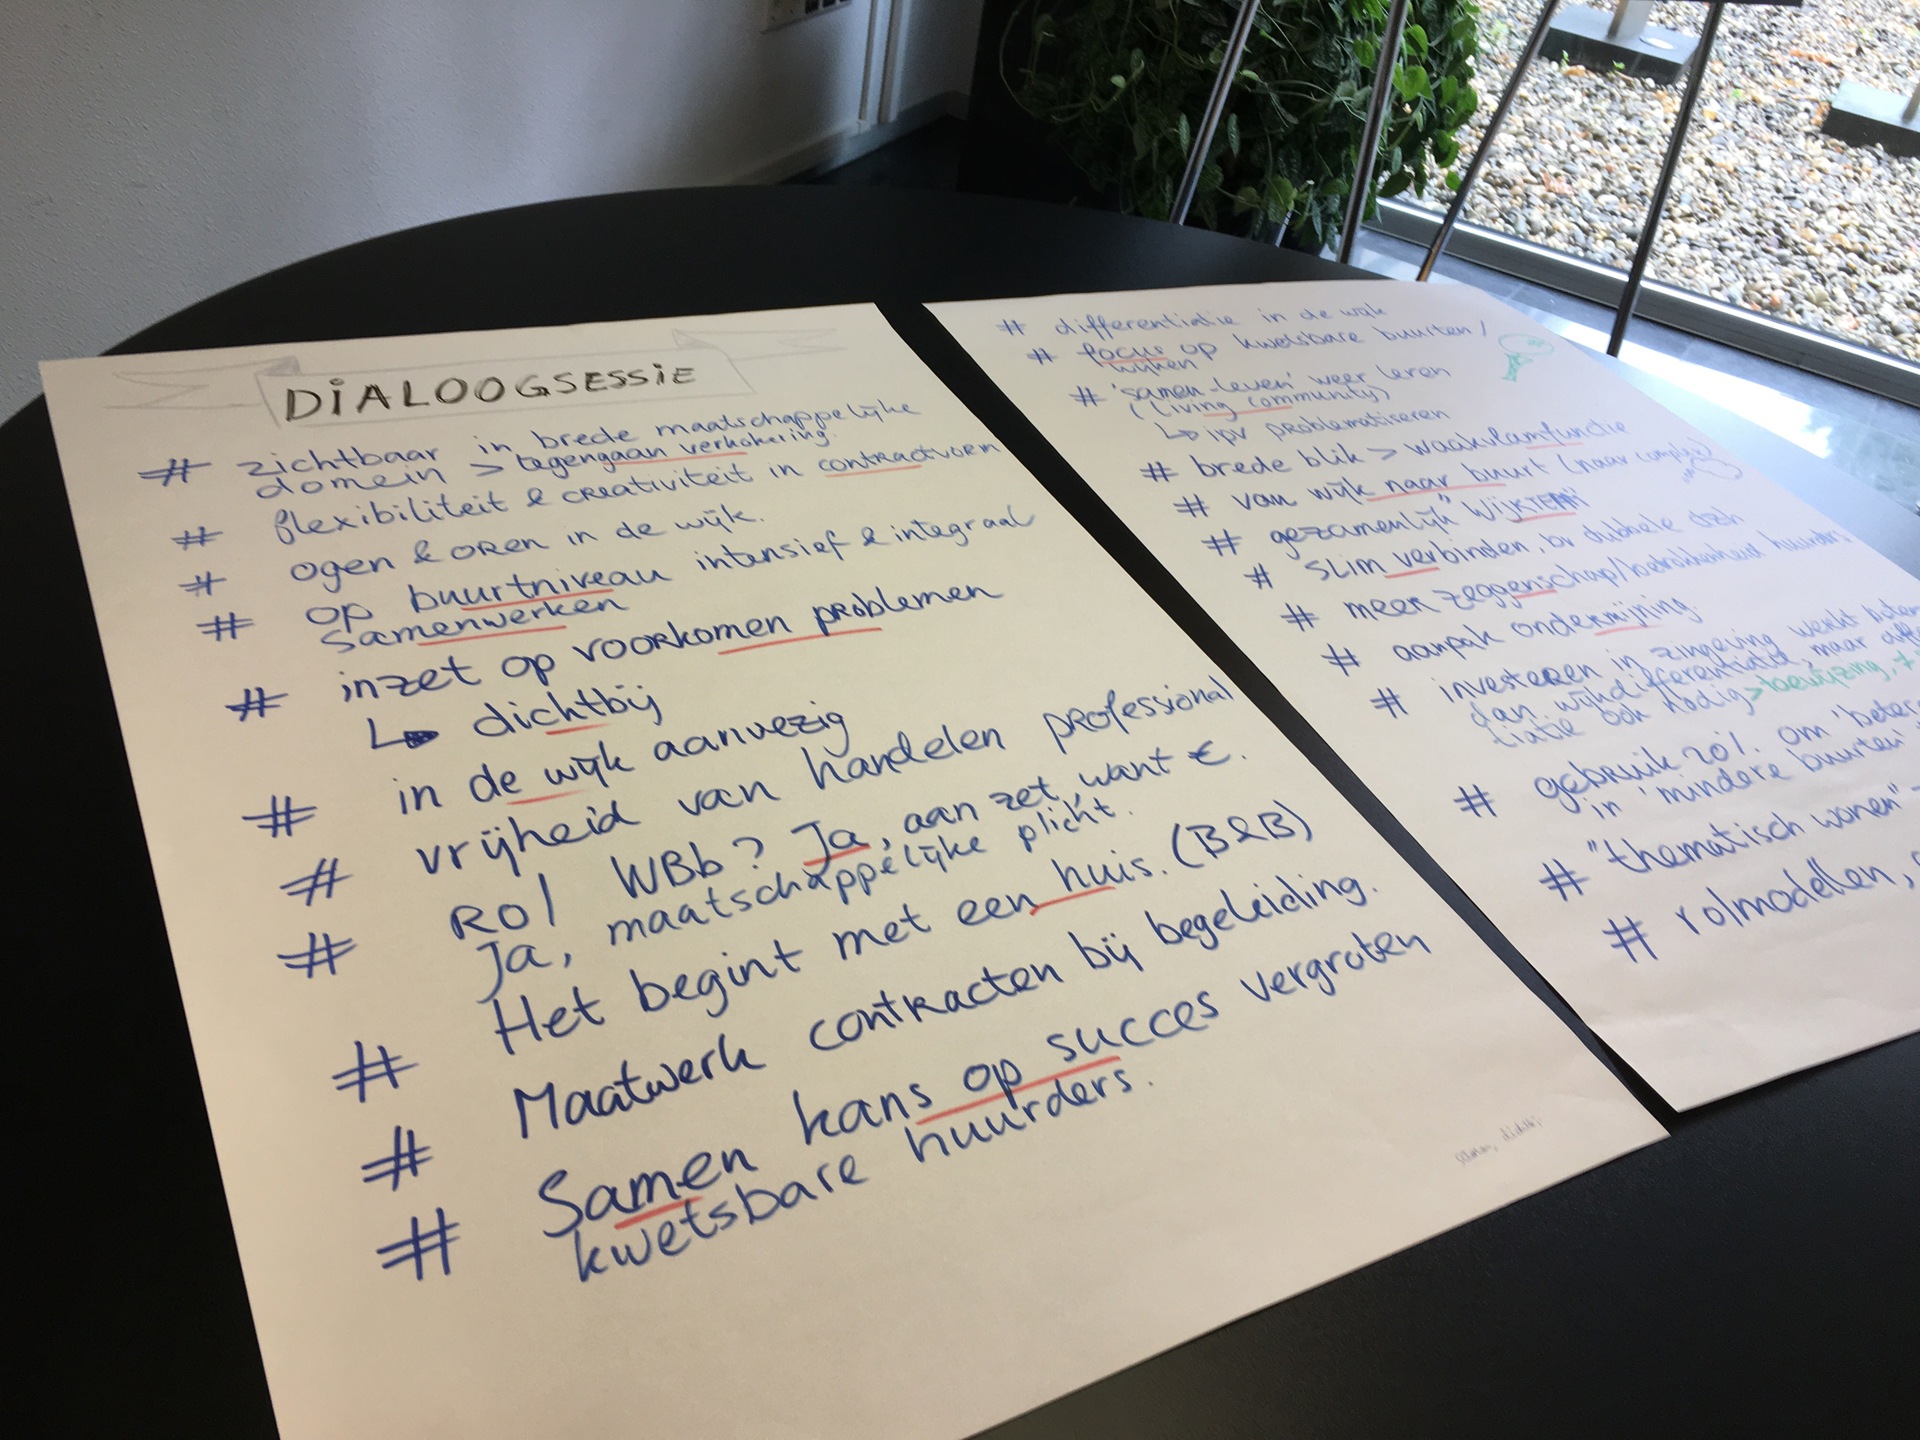 DiALOOGSESSiE
# zichtbaar in brede maatschappelijke
domein > tegengaan verkokering.
# flexibiliteit & creativiteit in contractvorm
# ogen & oren in de wijk.
# op buurtniveau intensief & integraal
samenwerken
# inzet op voorkomen problemen
↳ dichtbij
# in de wijk aanwezig
# vrijheid van handelen professional
# Rol WBb? Ja, aan zet, want €.
Ja, maatschappelijke plicht.
# Het begint met een huis. (B&B)
# Maatwerk contracten bij begeleiding.
# Samen kans op succes vergroten
kwetsbare huurders.
# differentiatie in de wijk
# focus op kwetsbare buurten/
wijken
# 'samen-leven' weer leren
(living community)
↳ ipv problematiseren
# brede blik > waakvlamfunctie
# van wijk naar buurt (naar complex)
# gezamenlijk "WijkTEAM"
# SLim verbinden, bv dubbele dzh
# meer zeggenschap/betrokkenheid huurders
# aanpak ondermijning.
# investeren in zingeving werkt beter
dan wijkdifferentiatie, maar
tiatie ook nodig > toewijzing,
# gebruik zo!. om 'beter
in 'mindere buurten'
# "thematisch wonen"
# rolmodellen,